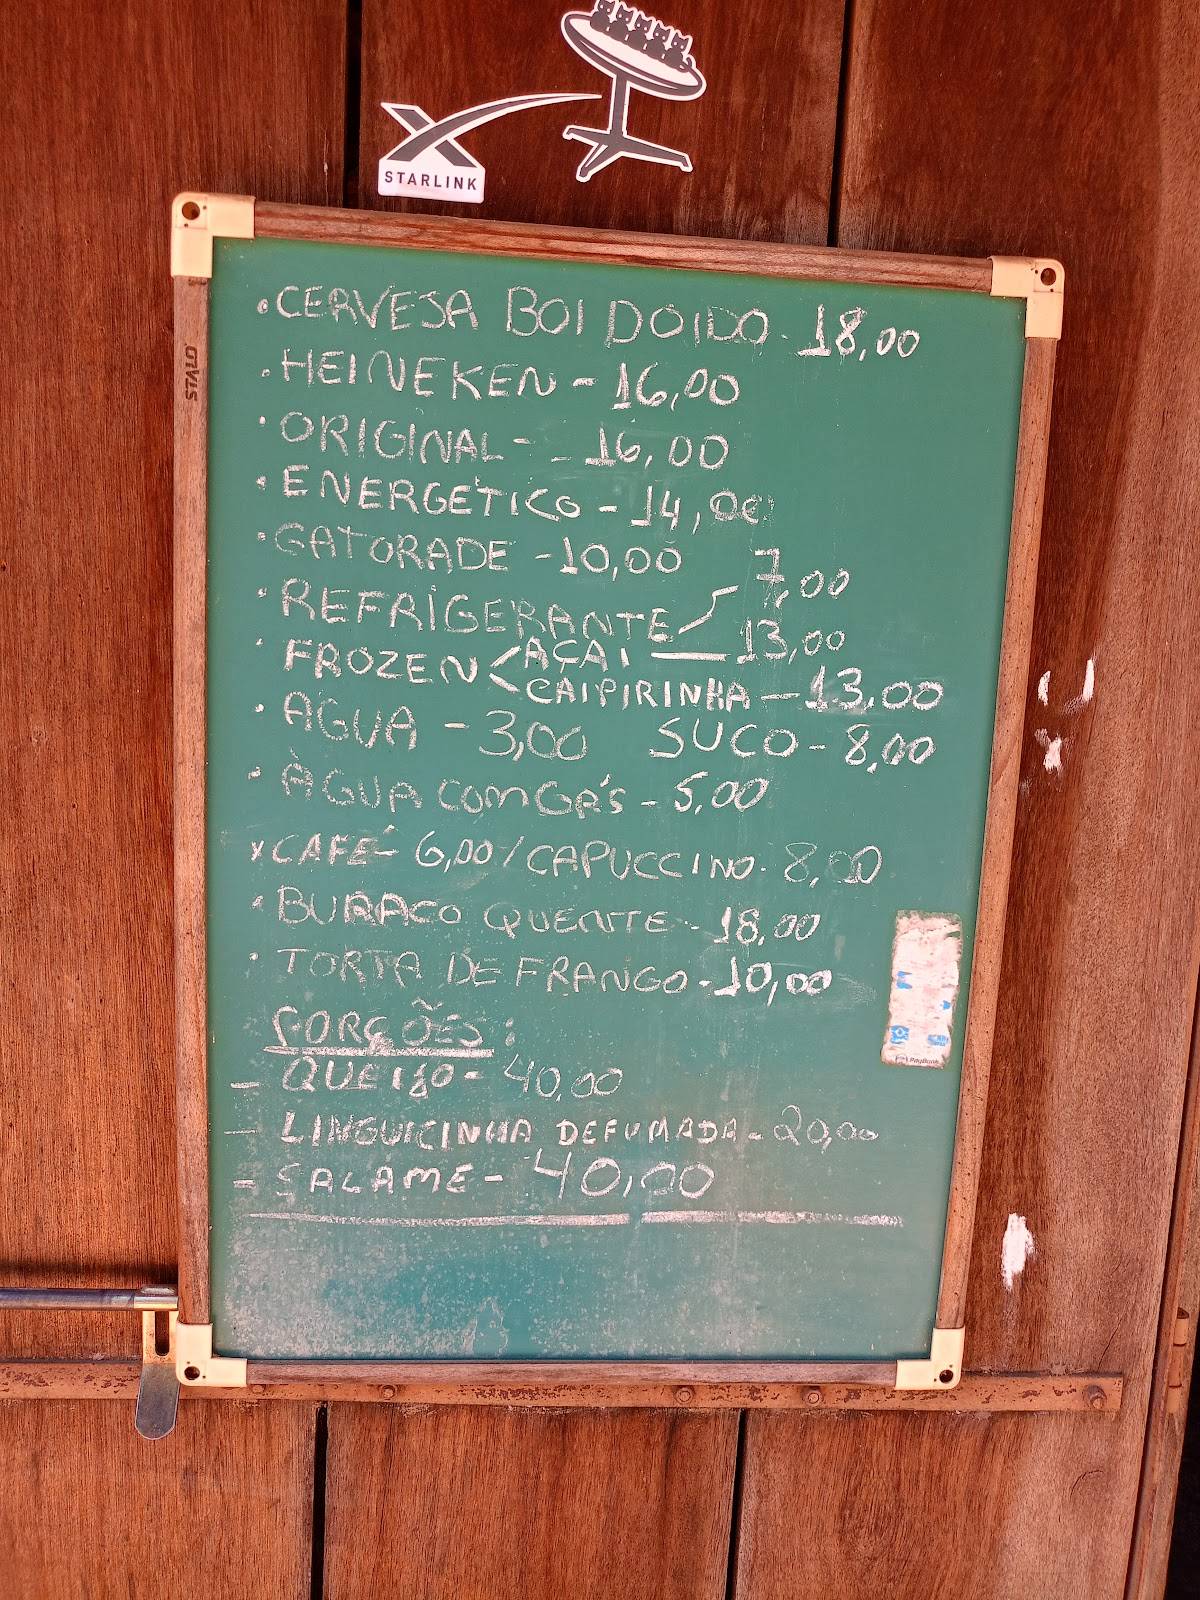 STARLINK
STALO
• CERVEJA BOI DOIDO - 18,00
• HEINEKEN - 16,00
• ORIGINAL - - 16,00
• ENERGÉTICO - 14,00
• GATORADE - 10,00
• REFRIGERANTE / 7,00
• FROZEN < AÇAI — 13,00
CAIPIRINHA — 13,00
• ÁGUA - 3,00 SUCO - 8,00
• ÀGUA COM GÁS - 5,00
x CAFÉ - 6,00 / CAPUCCINO - 8,00
• BURACO QUENTE - 18,00
• TORTA DE FRANGO - 10,00
PORÇÕES:
- QUEIJO - 40,00
- LINGUICINHA DEFUMADA - 20,00
- SALAME - 40,00
PagBank